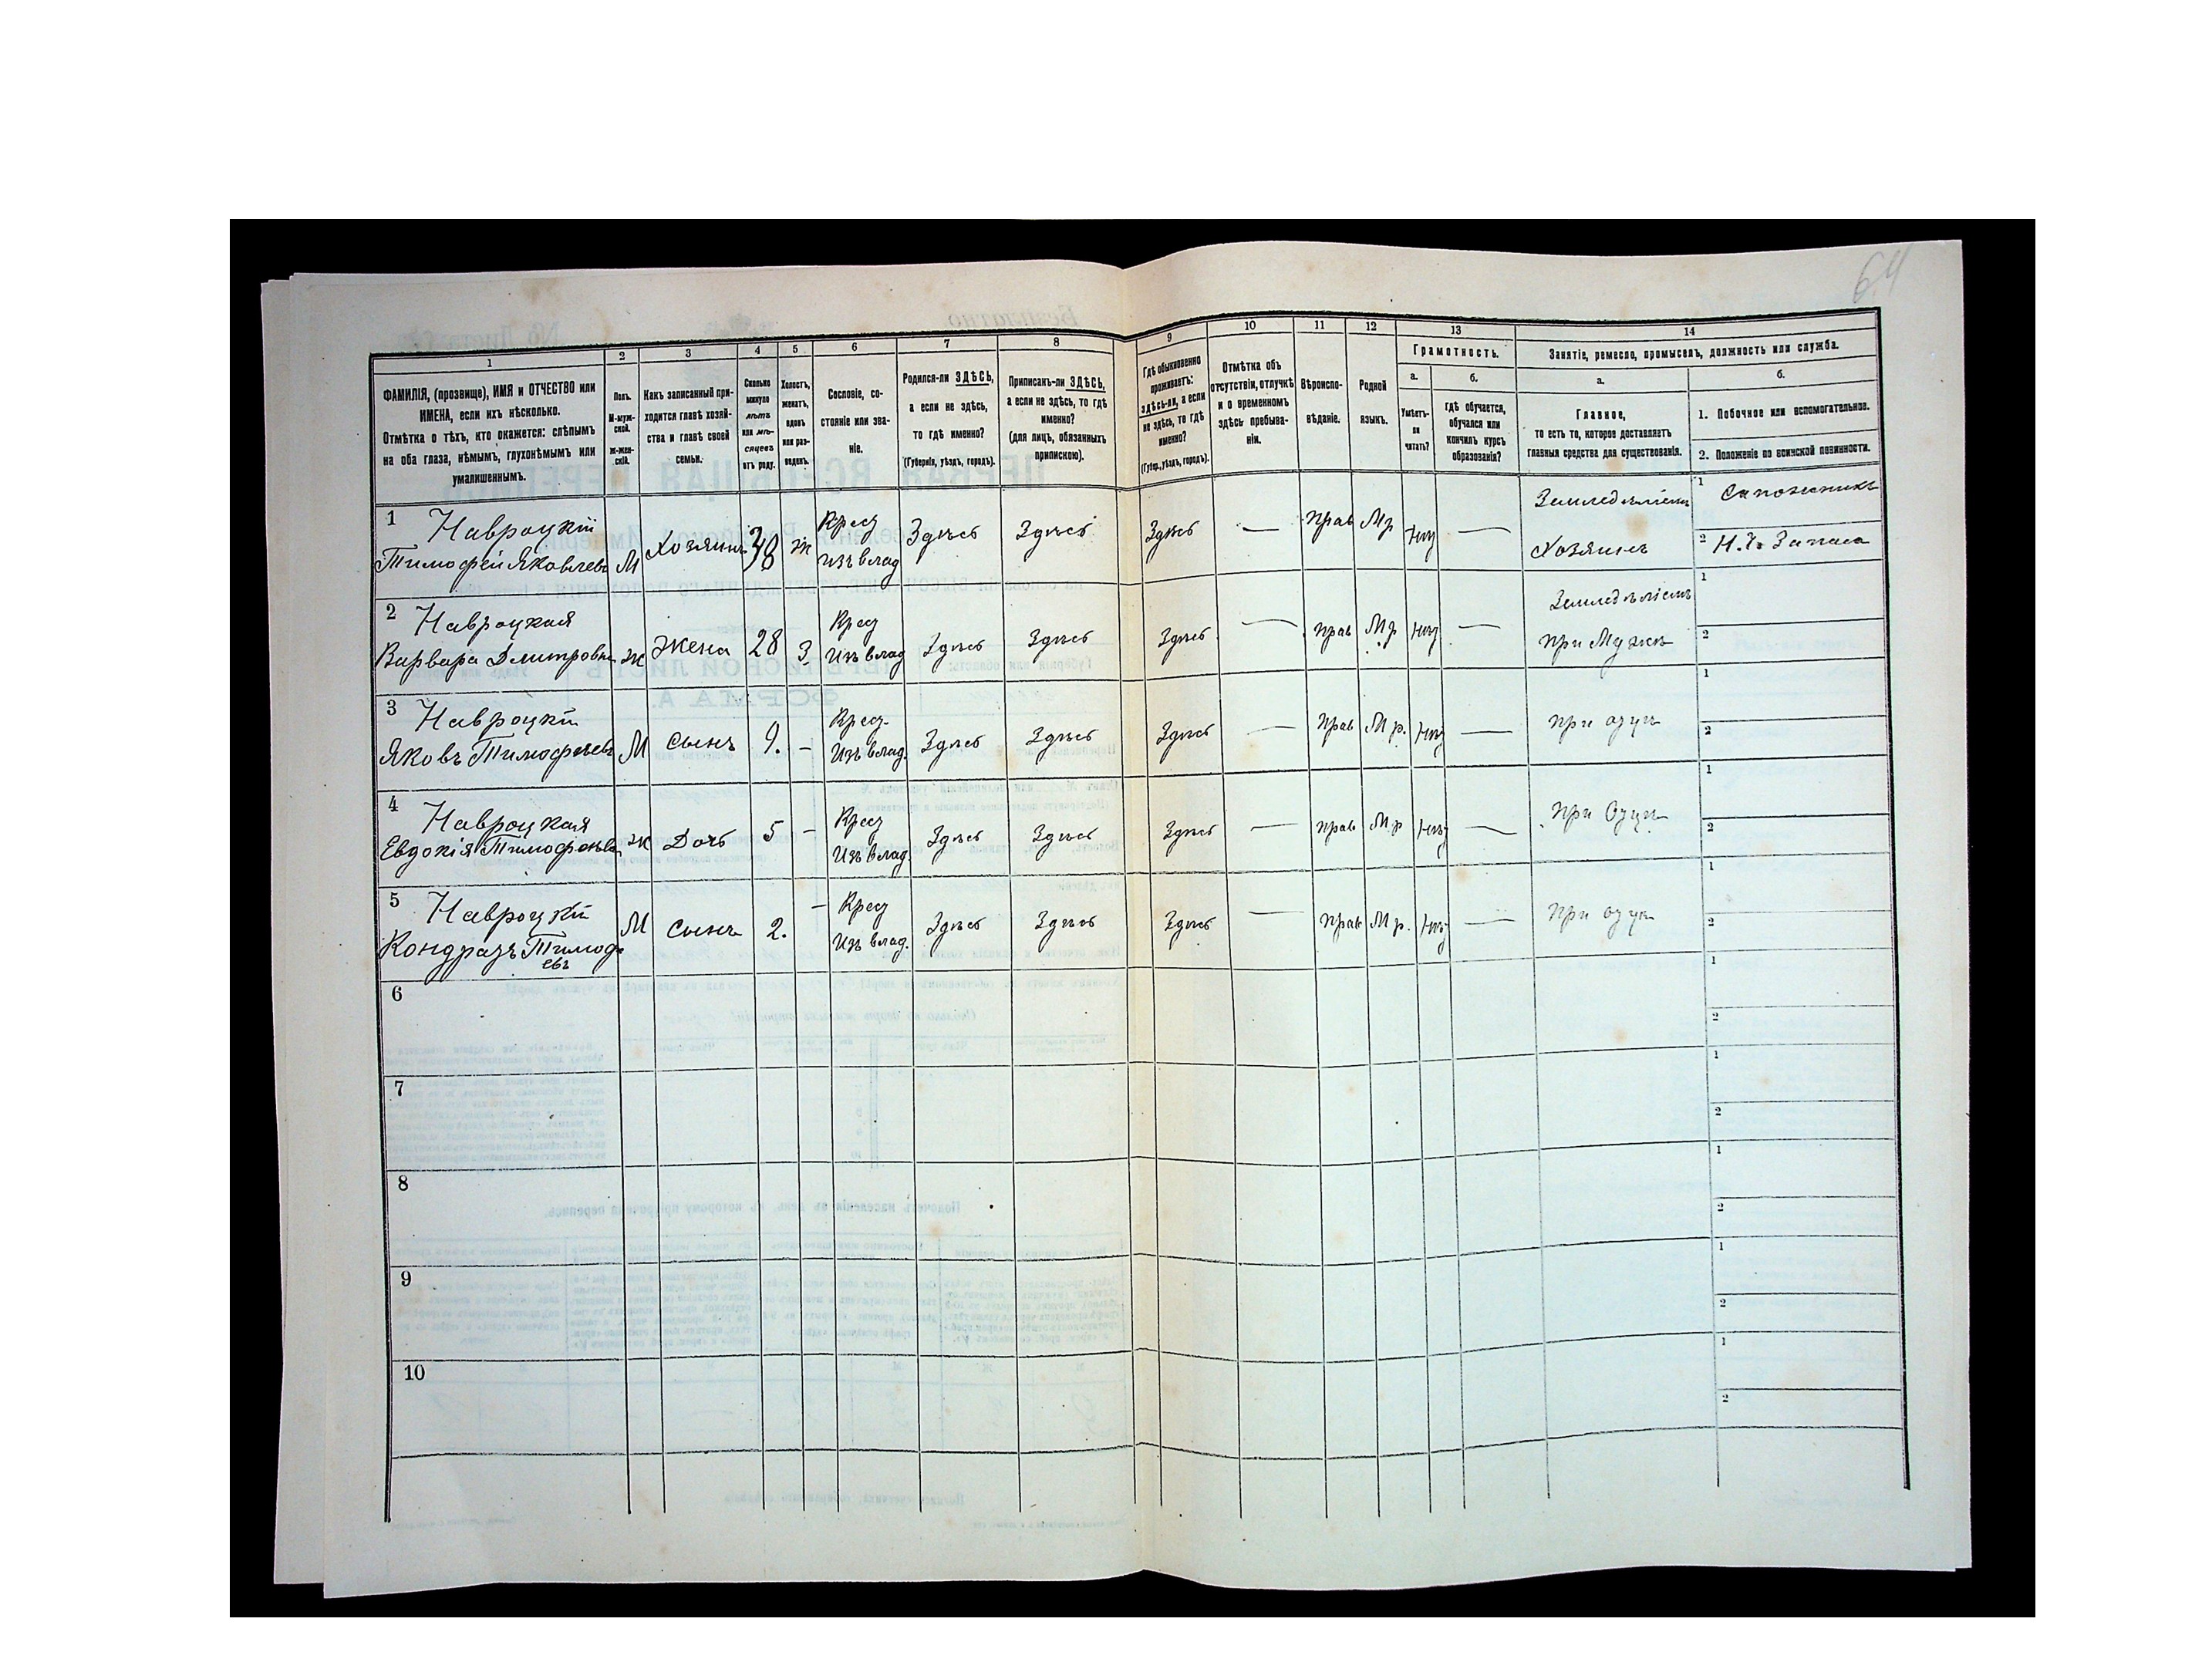 64
1
2
3
4
5
6
7
8
9
10
11
12
13
14
ФАМИЛІЯ, (прозвище), ИМЯ и ОТЧЕСТВО или
ИМЕНА, если ихъ нѣсколько.
Отмѣтка о тѣхъ, кто окажется: слѣпымъ
на оба глаза, нѣмымъ, глухонѣмымъ или
умалишеннымъ.
Полъ.
М-муж-
ской.
ж-жен-
скій.
Какъ записанный при-
ходится главѣ хозяй-
ства и главѣ своей
семьи.
Сколько
минуло
лѣтъ
или мѣ-
сяцевъ
отъ роду.
Холостъ,
женатъ,
вдовъ
или раз-
веденъ.
Сословіе, со-
стояніе или зва-
ніе.
Родился-ли ЗДѢСЬ,
а если не здѣсь,
то гдѣ именно?
(Губернія, уѣздъ, городъ).
Приписанъ-ли ЗДѢСЬ,
а если не здѣсь, то гдѣ
именно?
(для лицъ, обязанныхъ
припискою).
Гдѣ обыкновенно
проживаетъ:
здѣсь-ли, а если
не здѣсь, то гдѣ
именно?
(Губер., уѣздъ, городъ).
Отмѣтка объ
отсутствіи, отлучкѣ
и о временномъ
здѣсь пребыва-
ніи.
Вѣроиспо-
вѣданіе.
Родной
языкъ.
Грамотность.
а.
б.
Умѣетъ-
ли
читать?
гдѣ обучается,
обучался или
кончилъ курсъ
образованія?
Занятіе, ремесло, промыселъ, должность или служба.
а.
б.
Главное,
то есть то, которое доставляетъ
главныя средства для существованія.
1. Побочное или вспомогательное.
2. Положеніе по воинской повинности.
1 Навроцкій
Тимофей Яковлевъ М Хозяинъ 38 ж Крест изъ влад Здѣсь Здѣсь Здѣсь — Прав Мр нѣт — Земледѣліемъ Хозяинъ
1 Сапожникъ
2 Н. Ч. Запаса
2 Навроцкая
Варвара Дмитровна ж Жена 28 З. Крест Изъ влад Здѣсь Здѣсь Здѣсь — прав Мр нѣт — Земледѣліемъ при Мужѣ
1
2
3 Навроцкій
Яковъ Тимофеевъ М сынъ 9. – Крест Изъ влад. Здѣсь Здѣсь Здѣсь — Прав Мр. нѣт — при отцѣ
1
2
4 Навроцкая
Евдокія Тимофеева ж Дочь 5 – Крест Изъ влад. Здѣсь Здѣсь Здѣсь — прав Мр нѣт — при Отцѣ
1
2
5 Навроцкій
Кондратъ Тимоф
евъ М сынъ 2. – Крест Изъ влад. Здѣсь Здѣсь Здѣсь — прав Мр. нѣт — При отцѣ
1
2
6
1
2
7
1
2
8
1
2
9
1
2
10
1
2